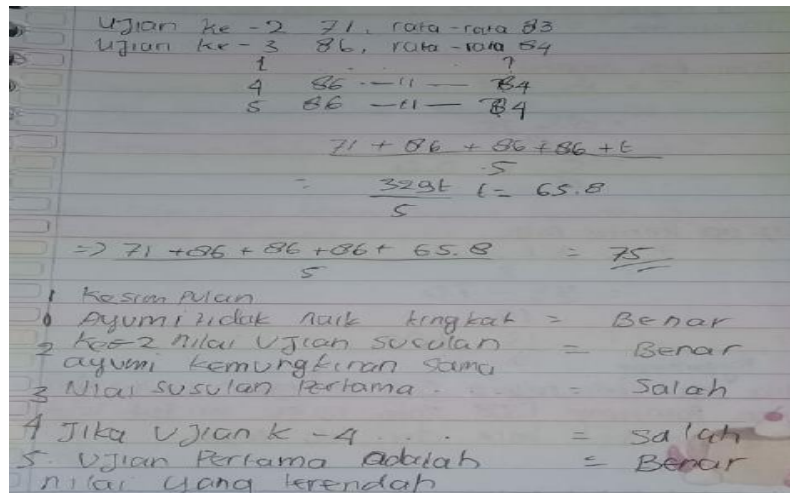 Ujian ke - 2 71, rata-rata 83
Ujian ke - 3 86, rata-rata 84
1 . . . ?
4 86 — 11 — 84
5 86 — 11 — 84
71 + 86 + 86 + 86 + t
5
= 329t t = 65.8
5
=> 71 + 86 + 86 + 86 + 65.8 = 75
5
Kesimpulan
Ayumi tidak naik tingkat = Benar
2 Ke-2 nilai Ujian susulan = Benar
ayumi kemungkinan sama
3 Nlai susulan Pertama . . = Salah
4 Jika Ujian k - 4 . . . = Salah
5. Ujian Pertama adalah = Benar
nilai yang terendah